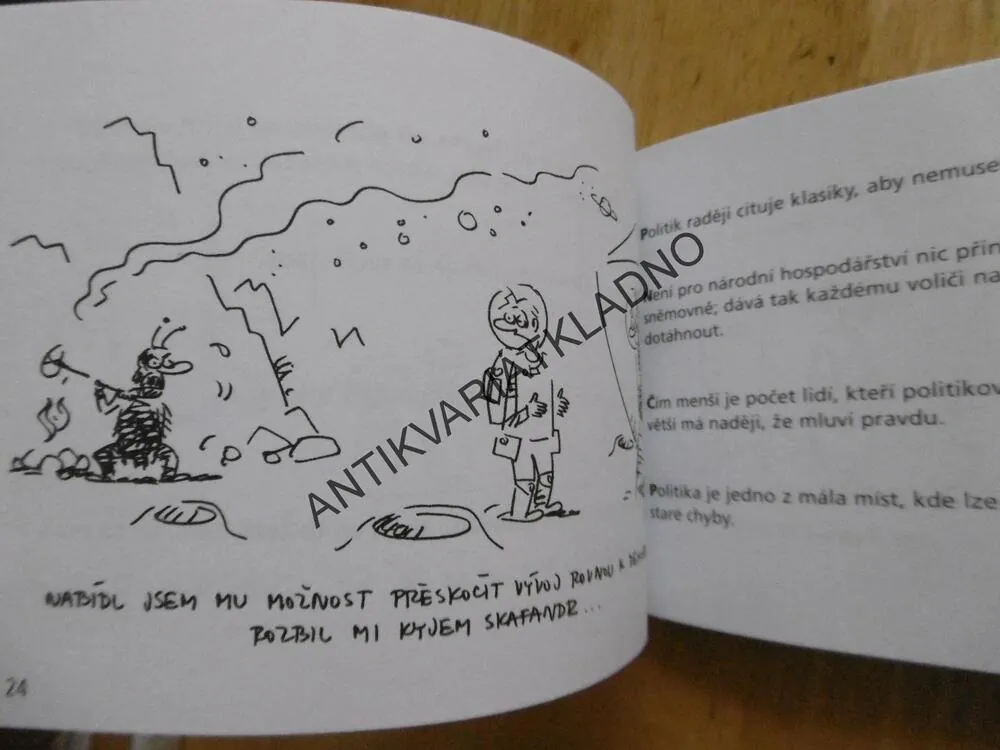 NABÍDL JSEM MU MOŽNOST PŘESKOČIT VÝVOJ ROVNOU K
ROZBIL MI KYJEM SKAFANDR...
24
Politik raději cituje klasiky, aby nemuse
Není pro národní hospodářství nic přín
sněmovně; dává tak každému voliči na
dotáhnout.
Čím menší je počet lidí, kteří politikov
větší má naději, že mluví pravdu.
Politika je jedno z mála míst, kde lze
staré chyby.
ANTIKVARIAT KLADNO